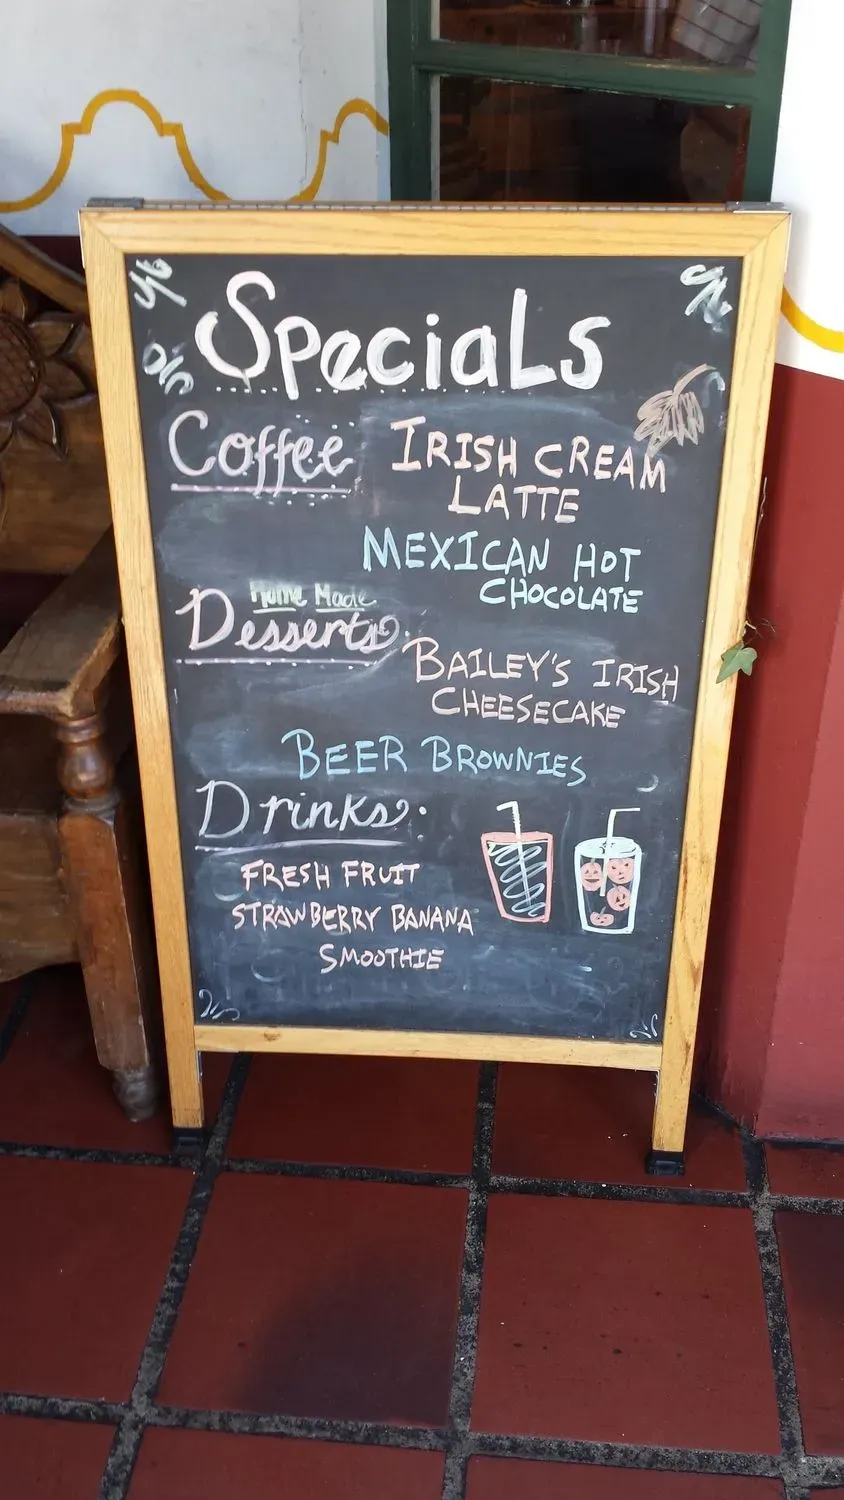 Specials
Coffee IRISH CREAM
LATTE
MEXICAN HOT
CHOCOLATE
Home Made
Desserts
BAILEY'S IRISH
CHEESECAKE
BEER BROWNIES
Drinks:
FRESH FRUIT
STRAWBERRY BANANA
SMOOTHIE